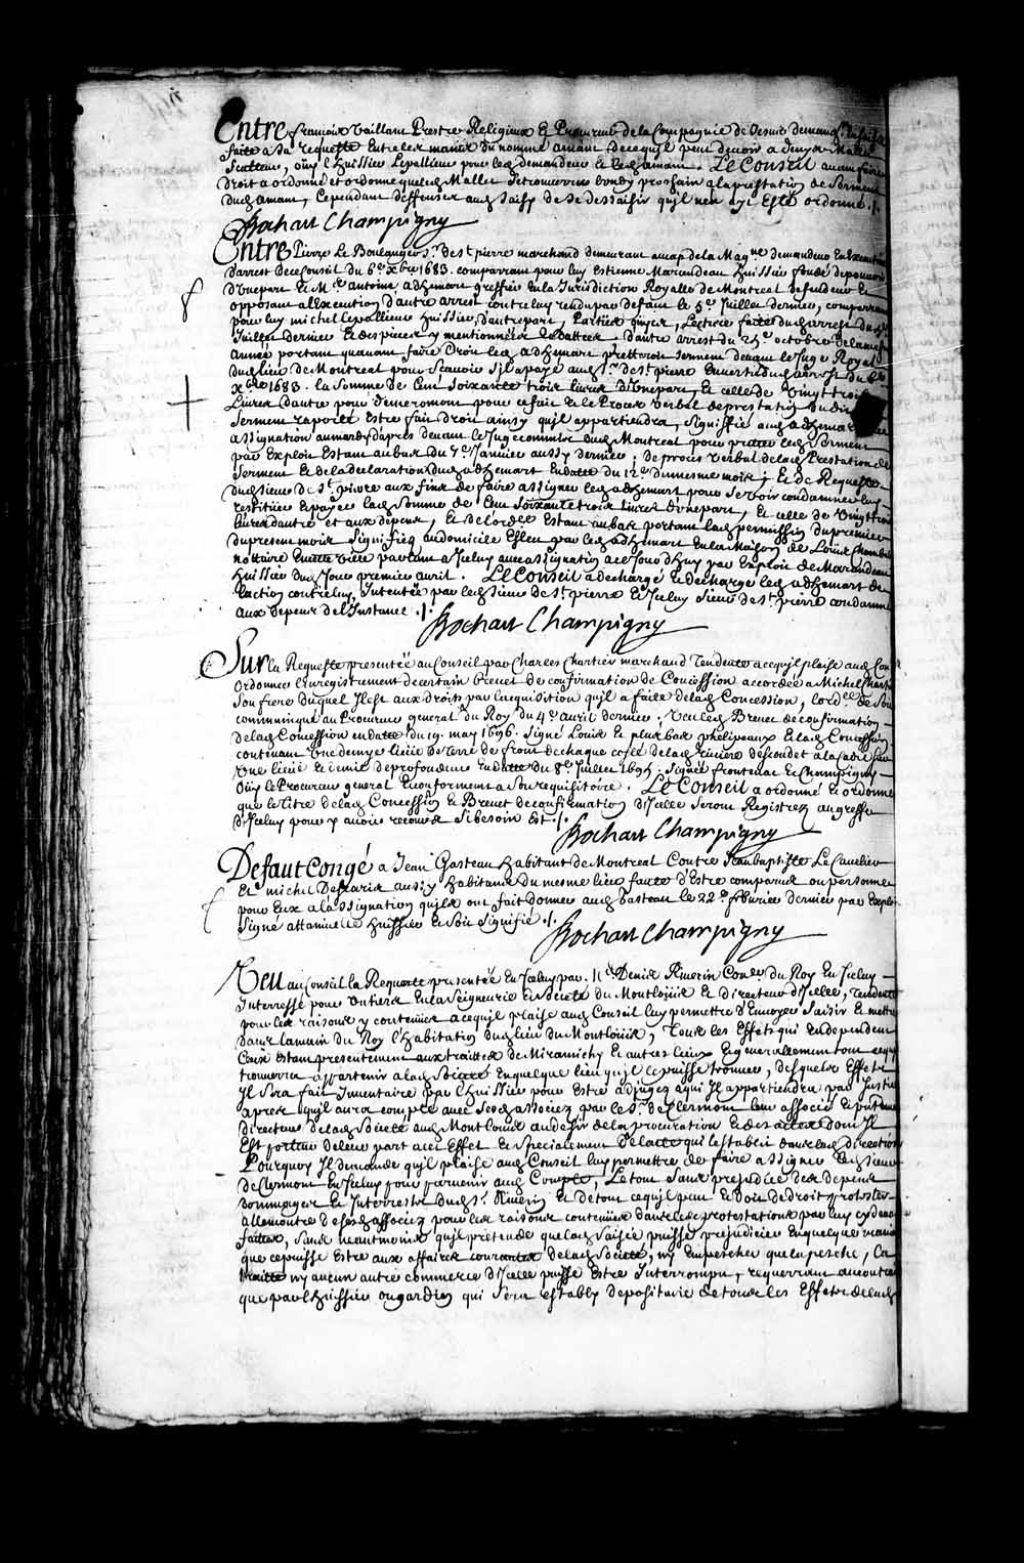 Entre francois Vaillant Prestre Religieux Et Procureur de la Compagnie de Jesus demand.
faite a sa requeste Entre les mains du nommé amant de ce qu'il peut devoir a denys Mallet
Sculteur, ouy l'huissier Lepallieur pour led demandeur Et led amant. Le Conseil avant faire
droit a ordonné et ordonne que led Mallet se trouvera lundy prochain a la prestation de Serment
dud amant, Cependant deffenses aud saisy de se dessaisir qu'il n'en aye Esté ordonné ./.
Bochart Champigny
Entre Pierre Le Boulanger Sr. de St. pierre marchand demeurant au cap de la Magne demandeur En Execution
darrest de ce Conseil du 6e. xbre 1683. comparant pour luy Estienne Marandeau huissier fondé de pouvoir
d'Une part Et Me. Antoine adhemar greffier En la Jurisdiction Royalle de Montreal defendeur Et
opposant a l'Execution d'autre arrest contre luy rendu par defaut le 5e. Juillet dernier, comparant
pour luy michel Lepallieur huissier, d'autre part, Parties ouyes, Lecture faite dud arrest du
Juillet dernier Et des pieces y mentionnées Et dattées d'autre arrest du 29e. octobre de la mesme
année portant qu'avant faire Droit led adhemar presteroit serment devant le Juge Royal
dud lieu de Montreal pour scavoir s'il a payé aud Sr. de St. pierre En vertu dud arrest du 6e
xbre 1683. la Somme de Cent soixante trois livres d'Une part, Et celle de Vingt trois
Livres d'autre pour ce fait Et le Proces Verbal de prestation dudit
Serment raporté Estre fait droit ainsy qu'il appartiendra, signiffié aud adhemar
assignation devant le Juge commis aud Montreal pour prester led Serment
par Exploit Estant au bas du 7e. Janvier aussy dernier; de proces verbal de lad Prestation de
Serment Et de la declaration dud adhemart En datte du 12e. du mesme mois; Et de Requeste
dud Sieur de St. pierre aux fins de faire assigner led adhemart pour se voir condamner luy
restituer Et payer lad Somme de Cent Soixante trois Livres d'Une part, Et celle de Vingt trois
livres d'autre et aux depens, Et de l'ordce Estant au bas portant lad permission du premier
du present mois signifiée au domicille Esleu par led adhemart En la Maison de Louis Chambalon
nottaire En cette ville parlant a Iceluy avec assignation a ce Jourd'huy par Exploit de Marandeau
huissier dud Jour premier avril. Le Conseil a dechargé Et decharge led adhemart de
l'action contre luy Intentée par led Sieur de St. pierre Et Iceluy Sieur de St. pierre condamné
aux depens de l'Instance ./.
Bochart Champigny
Sur la Requeste presentée au Conseil par Charles Chartier marchand Tendante a ce qu'il plaise aud Con
Ordonner l'Enregistrement de certain brevet de confirmation de Concession accordée a Michel Chartier
son frere duquel Il est aux droits par l'acquisition qu'il a faite de lad Concession, l'ordce de Soit
communiqué au Procureur general du Roy du 4e. avril dernier. Veu led Brevet de confirmation
de lad Concession en datte du 19. may 1696. Signé Louis Et plus bas phelipeaux Et lad Concession
contenant Une demye lieüe de terre de front de chaque costé de lad riviere
Une lieüe Et demie de profondeur En datte du 8e. Juillet 1695. Signée frontenac Et Champigny
Ouy le Procureur general Et conforment a Son requisitoire. Le Conseil a ordonné Et ordonne
que le titre de lad Concession Et Brevet de confirmation d'Icelle Seront Registrez au greffe
d'Iceluy pour y avoir recours Si besoin Est ./.
Bochart Champigny
Defaut Congé a Jean Gasteau habitant de Montreal Contre Jean baptiste Le Cavelier
Et michel Descaris aussy habitans du mesme lieu faute d'Estre comparus ou personne
pour Eux a l'assignation qu'ils ont fait donner aud Gasteau le 22e. febvrier dernier par Exploit
Signé huissier Et Soit Signifié ./.
Bochart Champigny
Veu au Conseil la Requeste presentée En Iceluy par Me. Denis Riverin Conser du Roy En Iceluy
Interressé pour Un tiers En la Seigneurie Et Societé du Montloüis Et directeur d'Icelle, Tendante
pour les raisons y contenües a ce qu'il plaise aud Conseil luy permettre d'Envoyer Saisir Et mettre
Sous la main du Roy l'habitation dud lieu du Montloüis, Tous les Effets qui En dependent
Ceux estant presentement aux traittes de Miramichy Et autres lieux Et generallement tout ce qui
trouvera appartenir a lad Societé En quelque lieu qu'il se puisse trouver, desquels Effets
Il Sera fait Inventaire par l'huissier pour Estre adjugez a qui Il appartiendra par Justice
apres qu'il aura compté avec Sesd associez par le Sr. de Clermont leur associé Et
directeur de lad Societé aud Montlouis au desir de la procuration Et des actes dont Il
Est porteur de leur part a cet Effet Et specialement de l'acte qui l'establit dans lad direction
Pourquoy Il demande qu'il plaise aud Conseil luy permettre de faire assigner led Sieur
de Clermont En Iceluy pour parvenir aud Compte, Le tout Sans prejudice des depens
dommages Et Interrests dud Sr. Riverin Et de tout ce qu'il peut Et doit de droit protester
a l'encontre de sesd associez pour les raisons contenües dans les protestations par luy cy devant
faittes, Sans neantmoins qu'il pretende que lad Saisie puisse prejudicier En quelque maniere
que ce puisse Estre aux affaires courantes de lad Societé, ny Empescher que la pesche, la
traitte ny aucun autre commerce d'Icelle puisse Estre Interrompu, requerrant au contraire
que par l'huissier ou gardien qui Sera estably depositaire de tous les Effets de lad